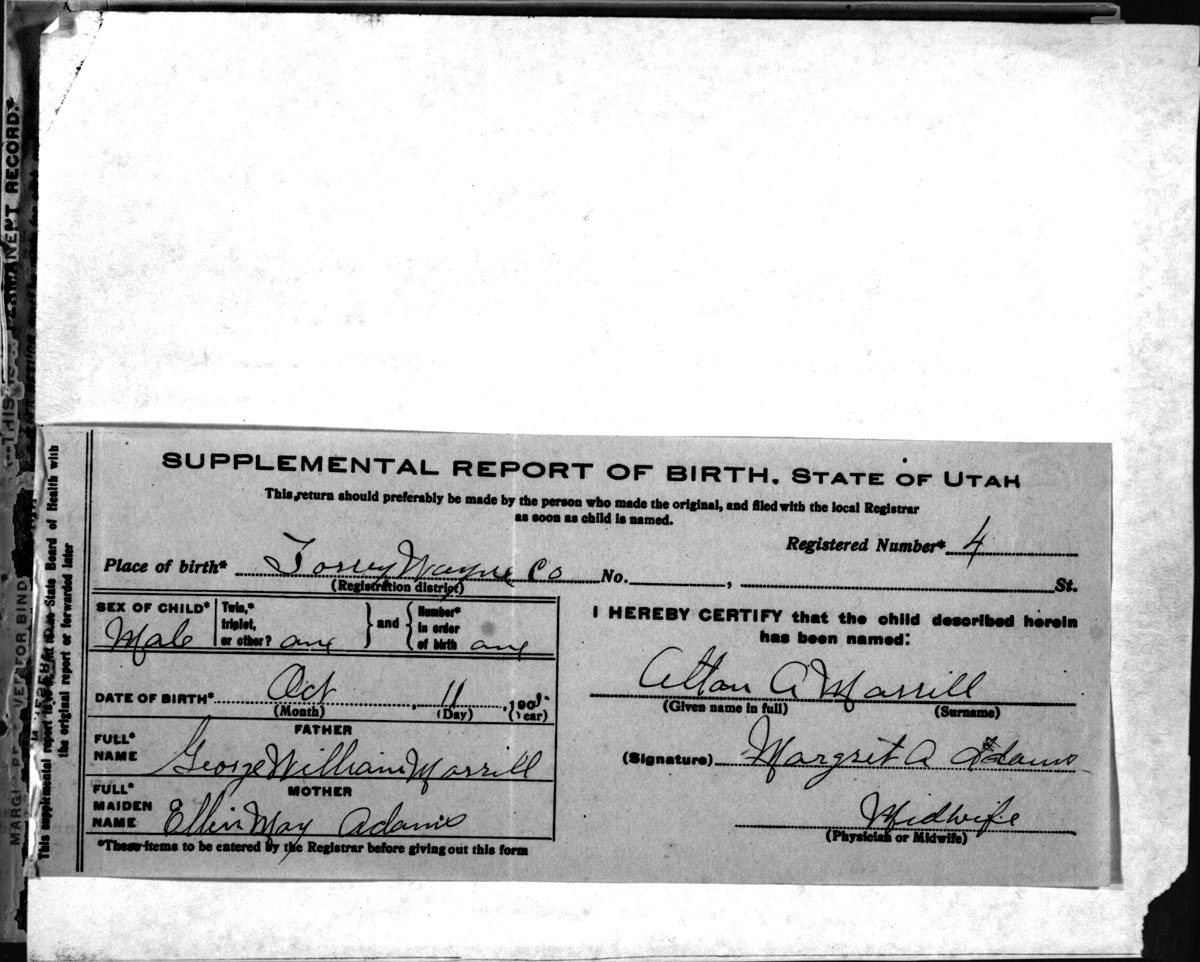 SUPPLEMENTAL REPORT OF BIRTH. STATE OF UTAH
This return should preferably be made by the person who made the original, and filed with the local Registrar
as soon as child is named.
Registered Number* 4
Place of birth* Torrey Wayne Co No. , St.
(Registration district)
SEX OF CHILD* Male
Twin,* triplet, or other? one
and
Number* in order of birth one
DATE OF BIRTH* Oct , 11 , 190
(Month) (Day) (Year)
FATHER
FULL* NAME George William Morrill
MOTHER
FULL* MAIDEN NAME Ellin May Adams
*These items to be entered by the Registrar before giving out this form
I HEREBY CERTIFY that the child described herein
has been named:
Alton A Morrill
(Given name in full) (Surname)
(Signature) Margret A Adams
Midwife
(Physician or Midwife)
This supplemental report State Board of Health with
the original report or forwarded later
THIS PERMANENT RECORD.
FOR BIND